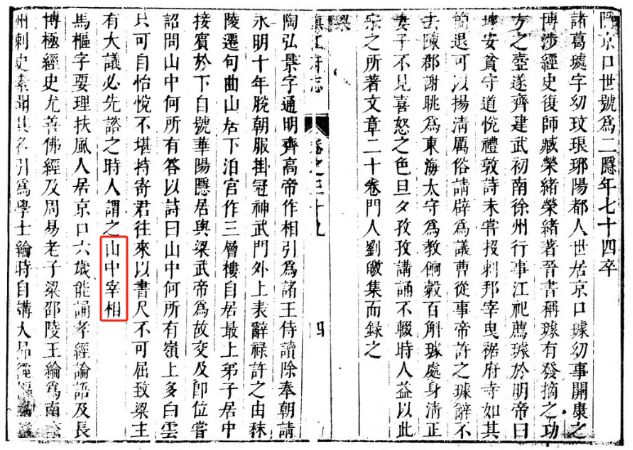 隱京口世號爲二隱年七十四卒
諸葛璩字幼玟琅琊陽都人世居京口璩幼事關康之
博涉經史復師臧榮緒榮緒著晉書稱璩有發摘之功
方之壺遂齊建武初南徐州行事江祀薦璩於明帝曰
璩安貧守道悅禮敦詩未嘗投刺邦宰曳裾府寺如其
簡退可以揚清厲俗請辟爲議曹從事帝許之璩辭不
去陳郡謝朓爲東海太守爲教餉穀百斛璩處身清正
妻子不見喜怒之色旦夕孜孜講誦不輟時人益以此
宗之所著文章二十卷門人劉曒集而錄之
鎮江府志 卷之三十九 四
陶弘景字通明齊高帝作相引爲諸王侍讀除奉朝請
永明十年脫朝服掛冠神武門外上表辭祿許之由秣
陵遷句曲山居下泊官作三層樓自居最上弟子居中
接賓於下自號華陽隱居與梁武帝爲故交及卽位嘗
詔問山中何所有答以詩曰山中何所有嶺上多白雲
只可自怡悅不堪持寄君往來以書尺不可屈致梁主
有大議必先諮之時人謂之山中宰相
馬樞字要理扶風人居京口六歲能誦孝經論語及長
博極經史尤善佛經及周易老子梁邵陵王綸爲南徐
州刺史素聞其名引爲學士綸時自講大品經